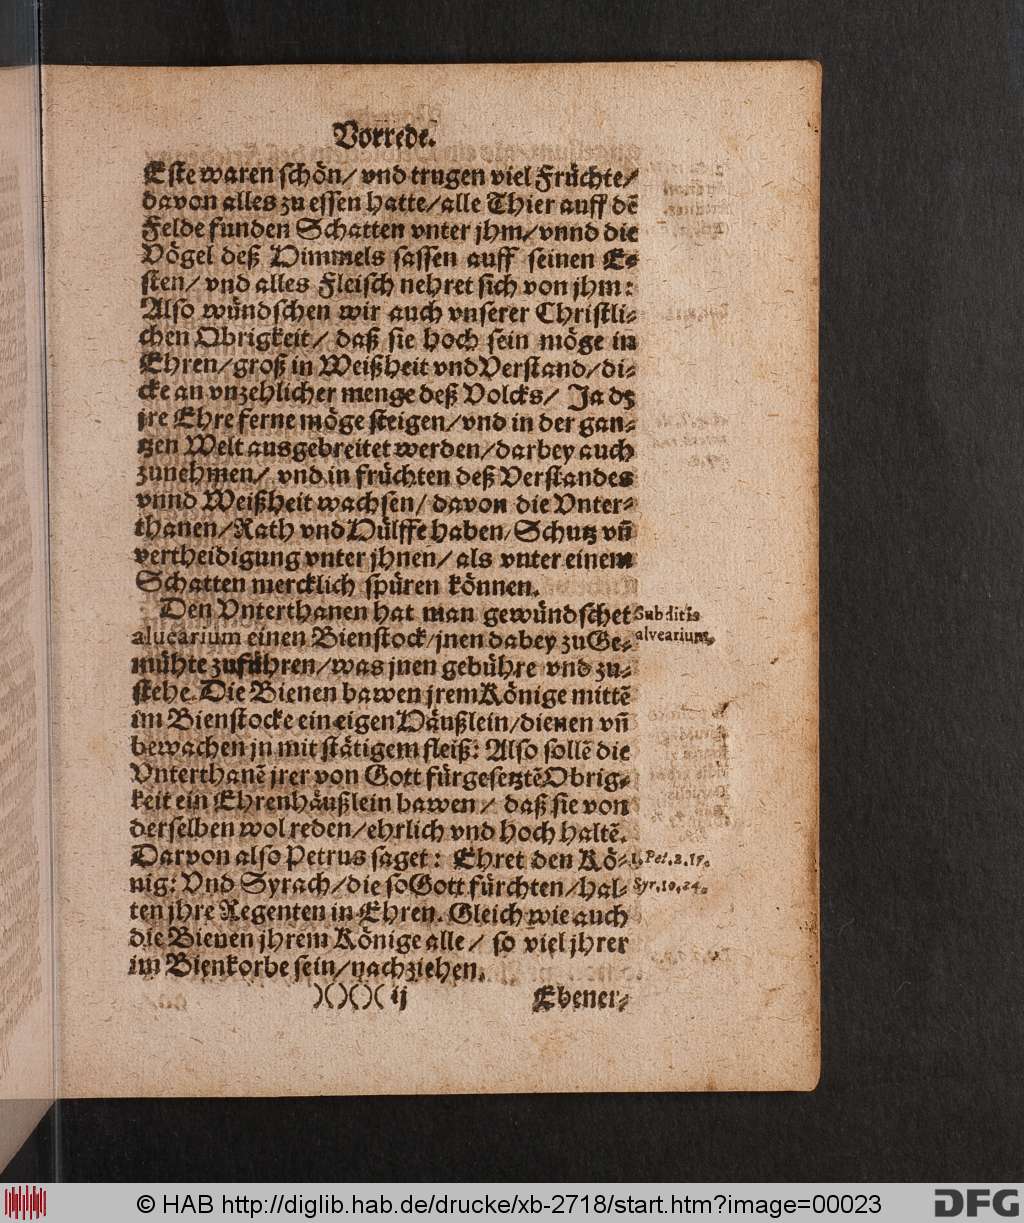 Vorrede.
Este waren schön/ vnd trugen viel Früchte/
davon alles zu essen hatte/ alle Thier auff dē
Felde funden Schatten vnter jhm/ vnnd die
Vögel deß Himmels sassen auff seinen E-
sten/ vnd alles Fleisch nehret sich von jhm:
Also wündschen wir auch vnserer Christli-
chen Obrigkeit/ daß sie hoch sein möge in
Ehren/ groß in Weißheit vnd Verstand/ di-
cke an vnzehlicher menge deß Volcks/ Ja dz
jre Ehre ferne möge steigen/ vnd in der gan-
tzen Welt ausgebreitet werden/ darbey auch
zunehmen/ vnd in früchten deß Verstandes
vnnd Weißheit wachsen/ davon die Vnter-
thanen/ Rath vnd Hülffe haben/ Schutz vn̄
vertheidigung vnter jhnen/ als vnter einem
Schatten mercklich spüren können.
Den Vnterthanen hat man gewündschet
Subditis
aluearium einen Bienstock/ jnen dabey zu Ge-
alvearium.
mühte zuführen/ was jnen gebühre vnd zu-
stehe. Die Bienen bawen jrem Könige mittē
im Bienstocke ein eigen Häußlein/ dienen vn̄
bewachen jn mit stätigem fleiß: Also sollē die
Vnterthanē jrer von Gott fürgesetztē Obrig-
keit ein Ehrenhäußlein bawen/ daß sie von
derselben wol reden/ ehrlich vnd hoch haltē.
Darvon also Petrus saget: Ehret den Kö-
1. Pet. 2. 17.
nig: Vnd Syrach/ die so Gott fürchten/ hal-
Syr. 10. 24.
ten jhre Regenten in Ehren. Gleich wie auch
die Bienen jhrem Könige alle/ so viel jhrer
im Bienkorbe sein/ nachziehen.
)()()( ij
Ebener-
© HAB http://diglib.hab.de/drucke/xb-2718/start.htm?image=00023
DFG